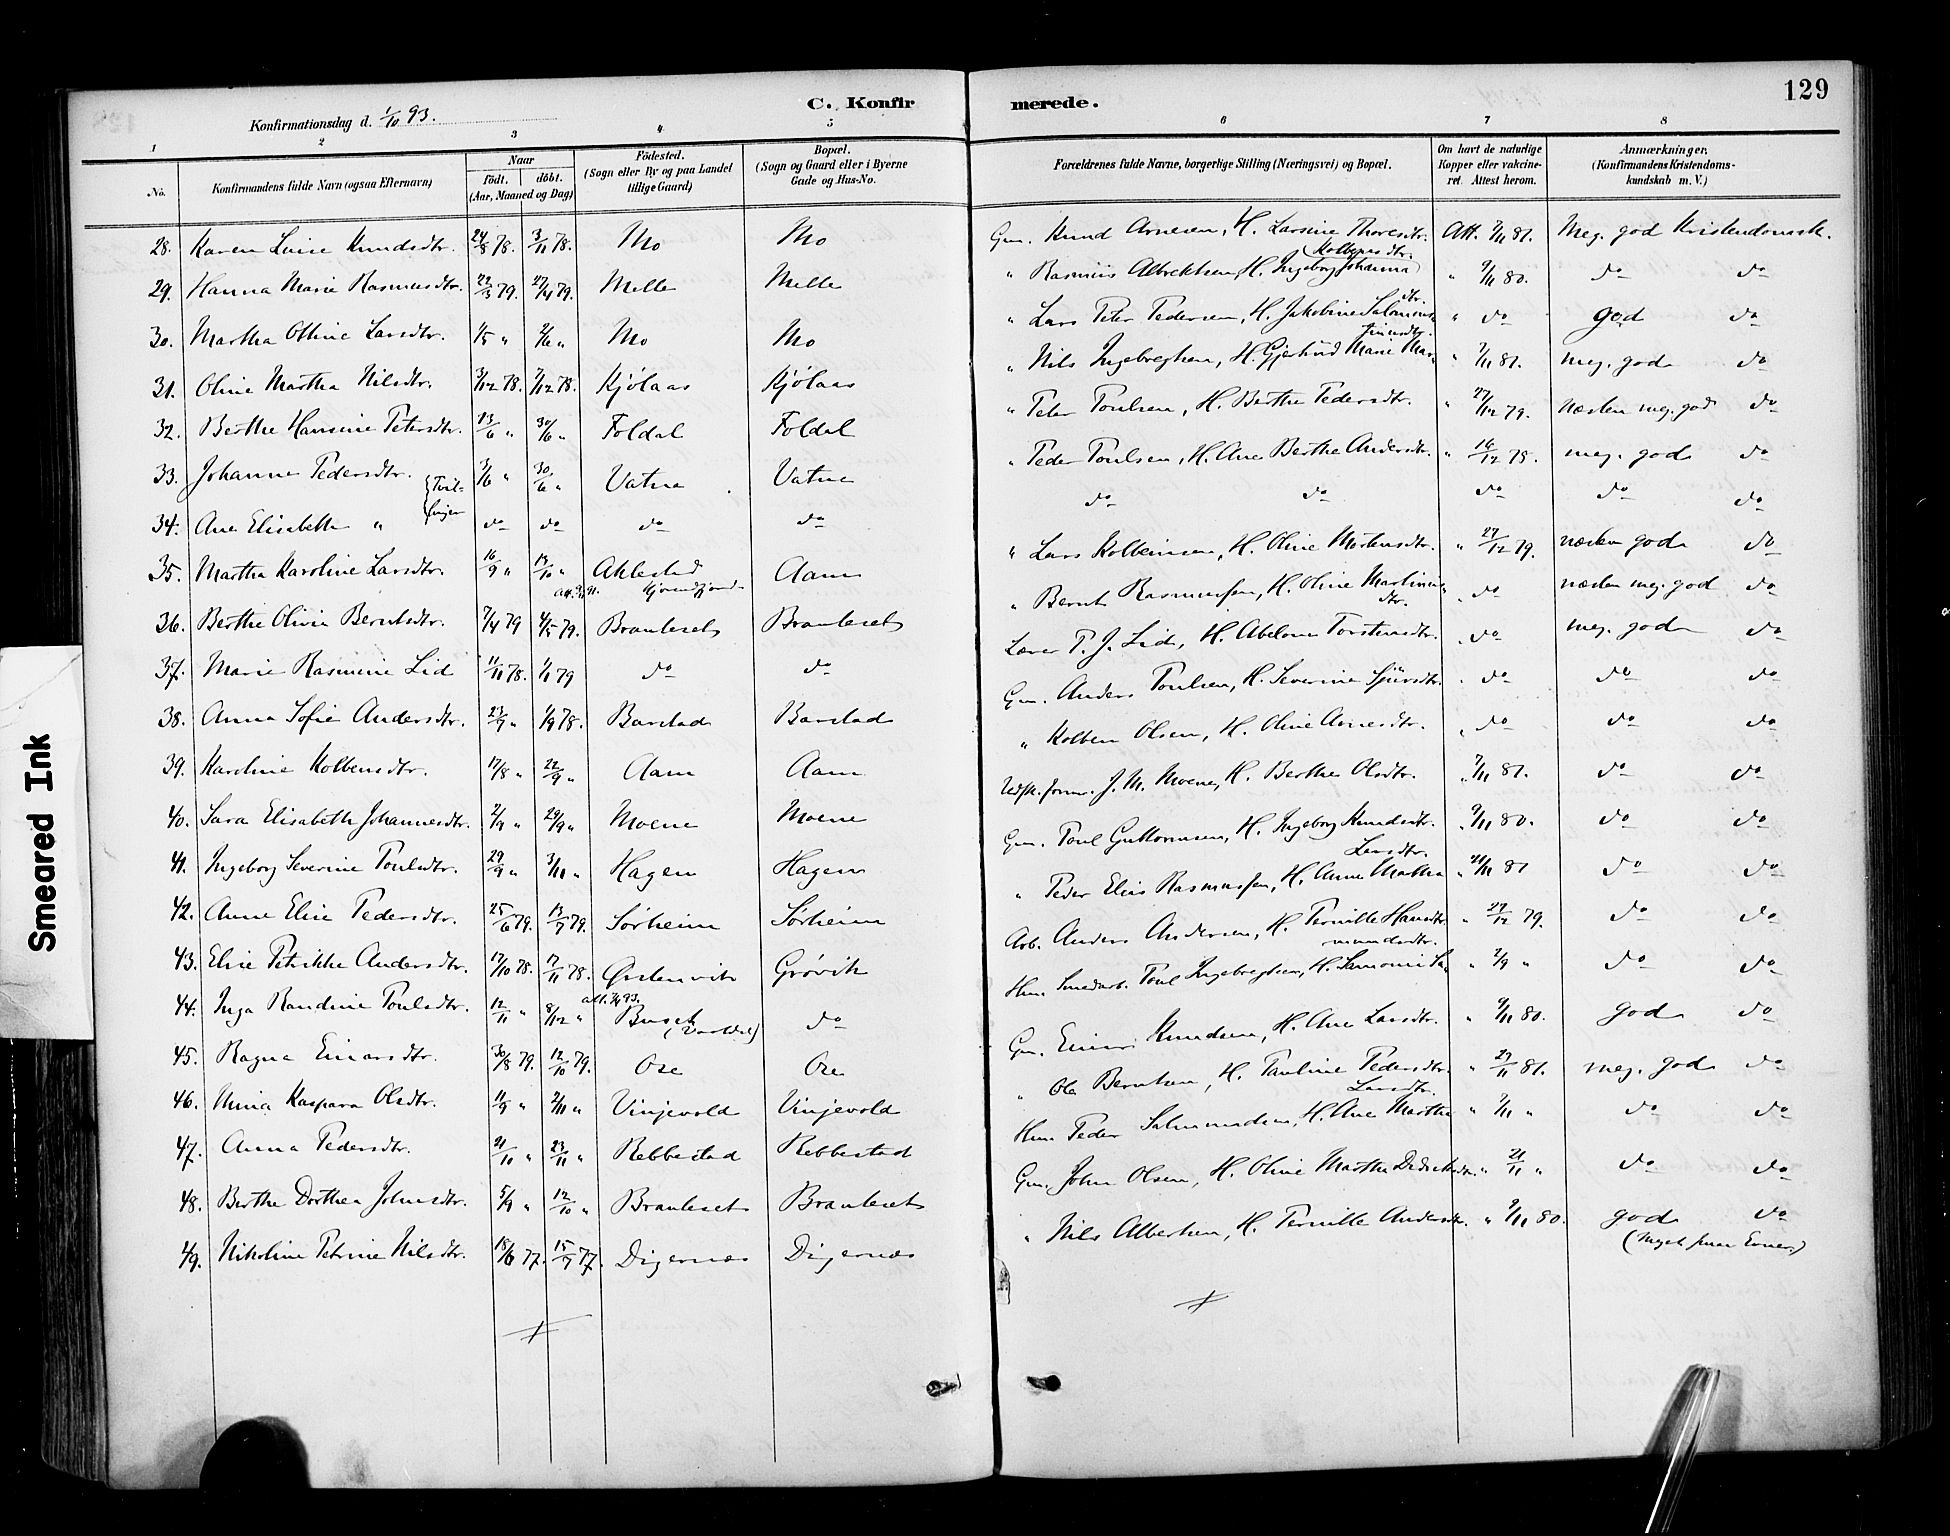 129
C. Konfirmerede.
Konfirmationsdag d. 1/10 93.
1 2 3 4 5 6 7 8
No. Konfirmandens fulde Navn (ogsaa Efternavn) Naar födt. döbt. (Aar, Maaned og Dag) Födested. (Sogn eller By og paa Landet tillige Gaard) Bopæl. (Sogn og Gaard eller i Byerne Gade og Hus-No. Forældrenes fulde Navne, borgerlige Stilling (Næringsvei) og Bopæl. Om havt de naturlige Kopper eller vakcineret. Attest herom. Anmærkninger, (Konfirmandens Kristendomskundskab m. V.)
28. Karen Luise Knudsdtr. 24/8 78. 3/11 78. Mo Mo Gm. Knud Arnesen, H. Larsine Thoresdtr. Att. 7/11 81. Meg. god Kristendomsk.
29. Hanna Marie Rasmusdtr. 22/3 79. 27/4 79. Melle Melle " Rasmus Albrektsen, H. Ingeborg Johanna Kolbensdtr. " 9/11 80. do do
30. Martha Oline Larsdtr. 1/5 " 2/6 " Mo Mo " Lars Peter Pedersen, H. Jakobine Salomonsdtr. " do god do
31. Oline Martha Nilsdtr. 3/12 78. 7/12 78. Kjölaas Kjölaas " Nils Ingebregtsen, H. Gjertrud Marie Martinusdtr. " 7/11 81. meg. god do
32. Berthe Hansine Petersdtr. 13/6 " 30/6 " Foldal Foldal " Peter Poulsen, H. Berthe Pedersdtr. " 27/12 79. næsten meg. god do
33. Johanne Pedersdtr. 3/6 " 30/6 " Vatne Vatne " Peder Poulsen, H. Ane Berthe Andersdtr. " 16/12 78. meg. god do
{Tvillinger
34. Ane Elisabeth " do do do do do do do do do
35. Martha Karoline Larsdtr. 16/9 " 13/10 " Aklestad Aam " Lars Kolbeinsen, H. Oline Mortensdtr. " 27/12 79. næsten god do
36. Berthe Olivie Berntsdtr. 7/4 79 4/5 79. Brauteset Brauteset " Bernt Rasmussen, H. Oline Martinusdtr. " do næsten meg. god do
37. Marie Rasmine Lid 11/11 78. 1/1 79 do do Lærer P. J. Lid, H. Abelone Torstensdtr. " do meg. god do
38. Anna Sofie Andersdtr. 23/7 " 1/9 78. Barstad Barstad Gm. Anders Poulsen, H. Severine Sjursdtr. " do do do
39. Karoline Kolbensdtr. 17/8 " 22/9 " Aam Aam " Kolben Olsen, H. Oline Arnesdtr. " do do do
40. Sara Elisabeth Johannesdtr. 2/9 " 29/9 " Moene Moene J. M. Moene, H. Berthe Olsdtr. " 7/11 81. do do
41. Ingeborg Severine Poulsdtr. 29/9 " 3/11 " Hagen Hagen Gm. Poul Guttormsen, H. Ingeborg Knudsdtr. " 9/11 80. do do
42. Anne Elise Pedersdtr. 25/6 79. 13/7 79. Sørheim Sørheim " Peder Elias Rasmussen, H. Anne Malena Larsdtr. " 21/11 81 do do
43. Elise Petrikke Andersdtr. 17/10 78. 17/11 78. Ørstenvik Grøvik Arb. Anders Andersen, H. Pernille Hansdtr. " 27/12 79. do do
44. Inga Randine Poulsdtr. 12/11 " 8/12 " Buset do Hm. Smedarb. Poul Ingebregtsen, " 2/9 " do do
45. Ragna Einarsdtr. 30/8 79. 12/10 79. Ose Ose Gm. Einar Knudsen, H. Ane Larsdtr. " 9/11 80. god do
46. Nina Kaspara Olsdtr. 11/9 " 2/11 " Vinjevold Vinjevold " Ole Berntsen, H. Pauline Pedersdtr. " 27/11 81. meg. god do
47. Anna Pedersdtr. 21/10 " 23/11 " Rebbestad Rebbestad Hm. Peder Salmundsen, H. Ane Martha Larsdtr. " 7/11 " do do
48. Berthe Dorthea Johnsdtr. 5/9 " 12/10 " Brauteset Brauteset Gm. John Olsen, H. Oline Martha " 21/11 " do do
49. Nikoline Petrine Nilsdtr. 18/6 77. 15/7 77. Digernæs Digernæs " Nils Albertsen, H. Pernille Andersdtr. " 9/11 80. god do
(meget smaa Evner)
Smeared Ink